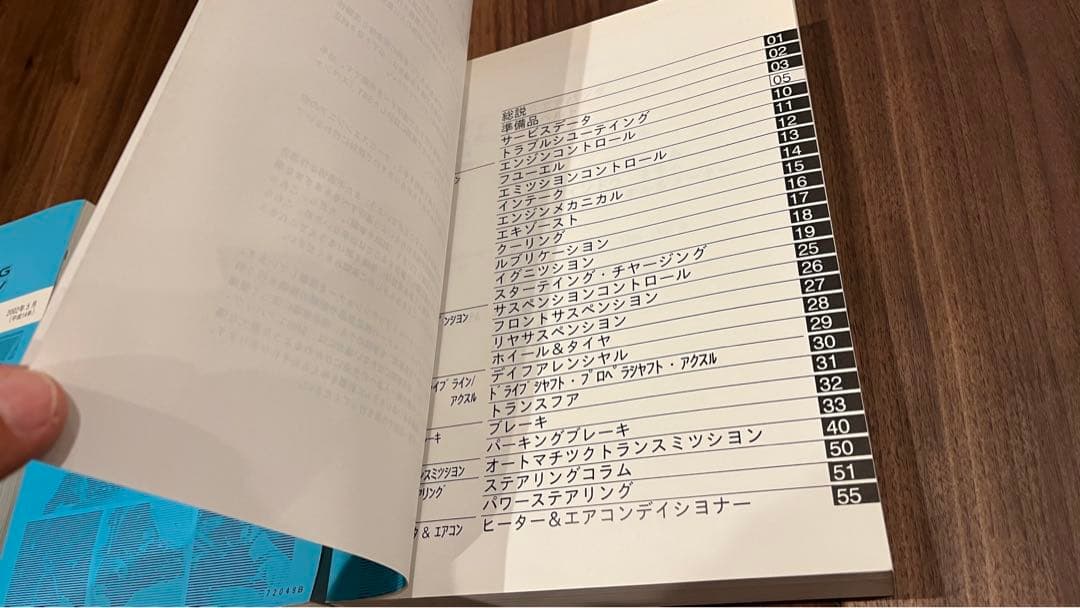 総説 01
準備品 02
サービスデータ 03
トラブルシユーテイング 05
エンジンコントロール 10
フユーエル 11
エミツシヨンコントロール 12
インテーク 13
エンジンメカニカル 14
エキゾースト 15
クーリング 16
ルブリケーシヨン 17
イグニツシヨン 18
スターテイング・チヤージング 19
サスペンシヨンコントロール 25
フロントサスペンシヨン 26
リヤサスペンシヨン 27
ホイール&タイヤ 28
デイフアレンシヤル 29
ドライブシャフト・プロペラシャフト・アクスル 30
トランスフア 31
ブレーキ 32
パーキングブレーキ 33
オートマチツクトランスミツシヨン 40
ステアリングコラム 50
パワーステアリング 51
ヒーター&エアコンデイシヨナー 55
ンション
イブ ライン/
アクスル
ーキ
ンスミッション
リング
& エアコン
G
2002年5月
(平成14年)
72048B